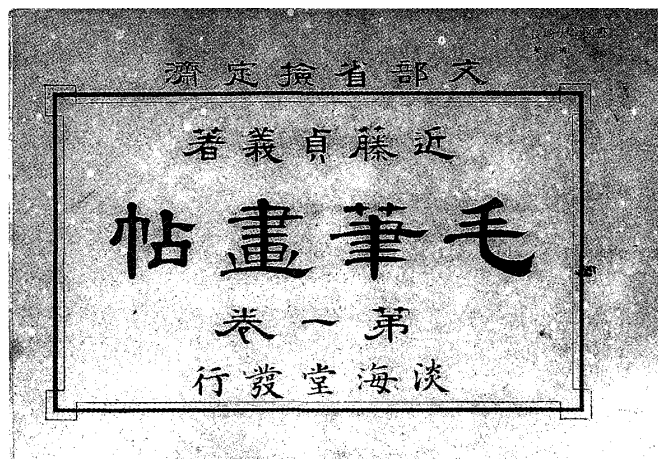 文部省檢定濟
近藤貞義著
毛筆畫帖
第一卷
淡海堂發行